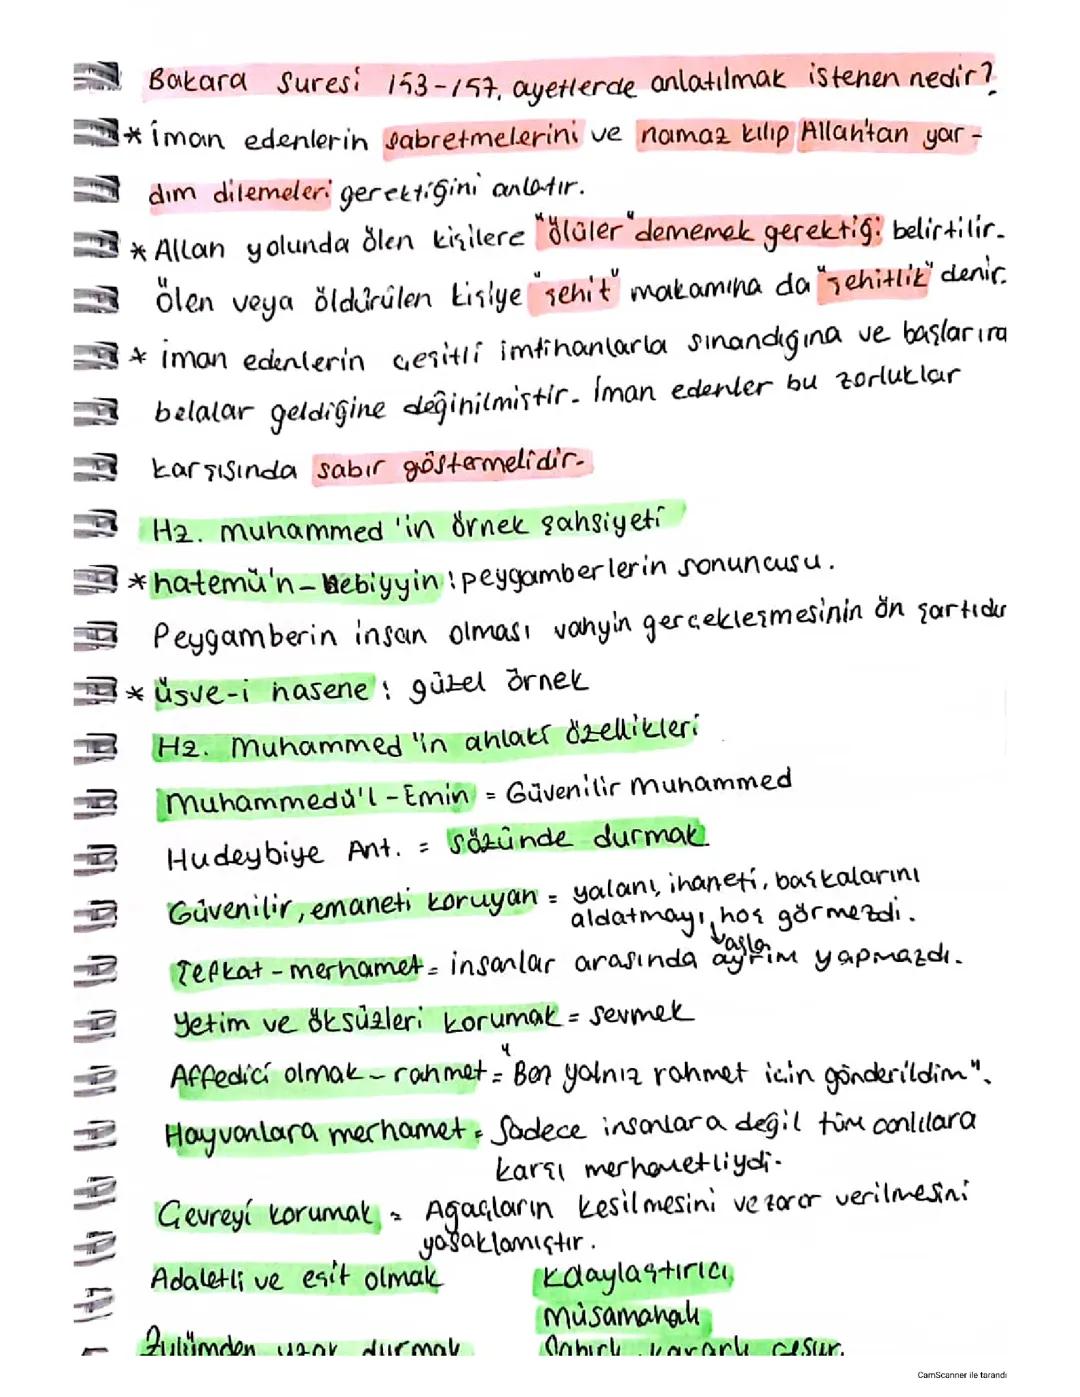 Bakara Suresi 153-157. ayetlerde anlatılmak istenen nedir?
* iman edenlerin sabretmelerini ve namaz kılıp Allah'tan yar-
dım dilemeleri gerektiğini anlatır.
* Allah yolunda ölen kişilere "ölüler" dememek gerektiği belirtilir.
ölen veya öldürülen kişiye "şehit" makamına da "şehitlik" denir.
* iman edenlerin çeşitli imtihanlarla sınandığına ve başlarına
belalar geldiğine değinilmiştir. İman edenler bu zorluklar
karşısında sabır göstermelidir.
Hz. Muhammed'in örnek şahsiyeti
* hatemü'n-Nebiyyin: peygamberlerin sonuncusu.
Peygamberin insan olması vahyin gerçekleşmesinin ön şartıdır
* üsve-i hasene: güzel örnek
Hz. Muhammed"in ahlakî özellikleri
Muhammedü'l-Emin = Güvenilir Muhammed
Hudeybiye Ant. = sözünde durmak
Güvenilir, emaneti koruyan = yalanı, ihaneti, başkalarını
aldatmayı, hoş görmezdi.
Şefkat-merhamet = insanlar arasında ayrım yapmazdı.
Yetim ve öksüzleri korumak = sevmek
Affedici olmak-rahmet = "Ben yalnız rahmet için gönderildim".
Hayvanlara merhamet = Sadece insanlara değil tüm canlılara
karşı merhametliydi.
Çevreyi korumak = Ağaçların kesilmesini ve zarar verilmesini
yasaklamıştır.
Adaletli ve eşit olmak kolaylaştırıcı,
müsamahalı
Zulümden uzak durmak Sabırlı, kararlı cesur.
CamScanner ile tarandı